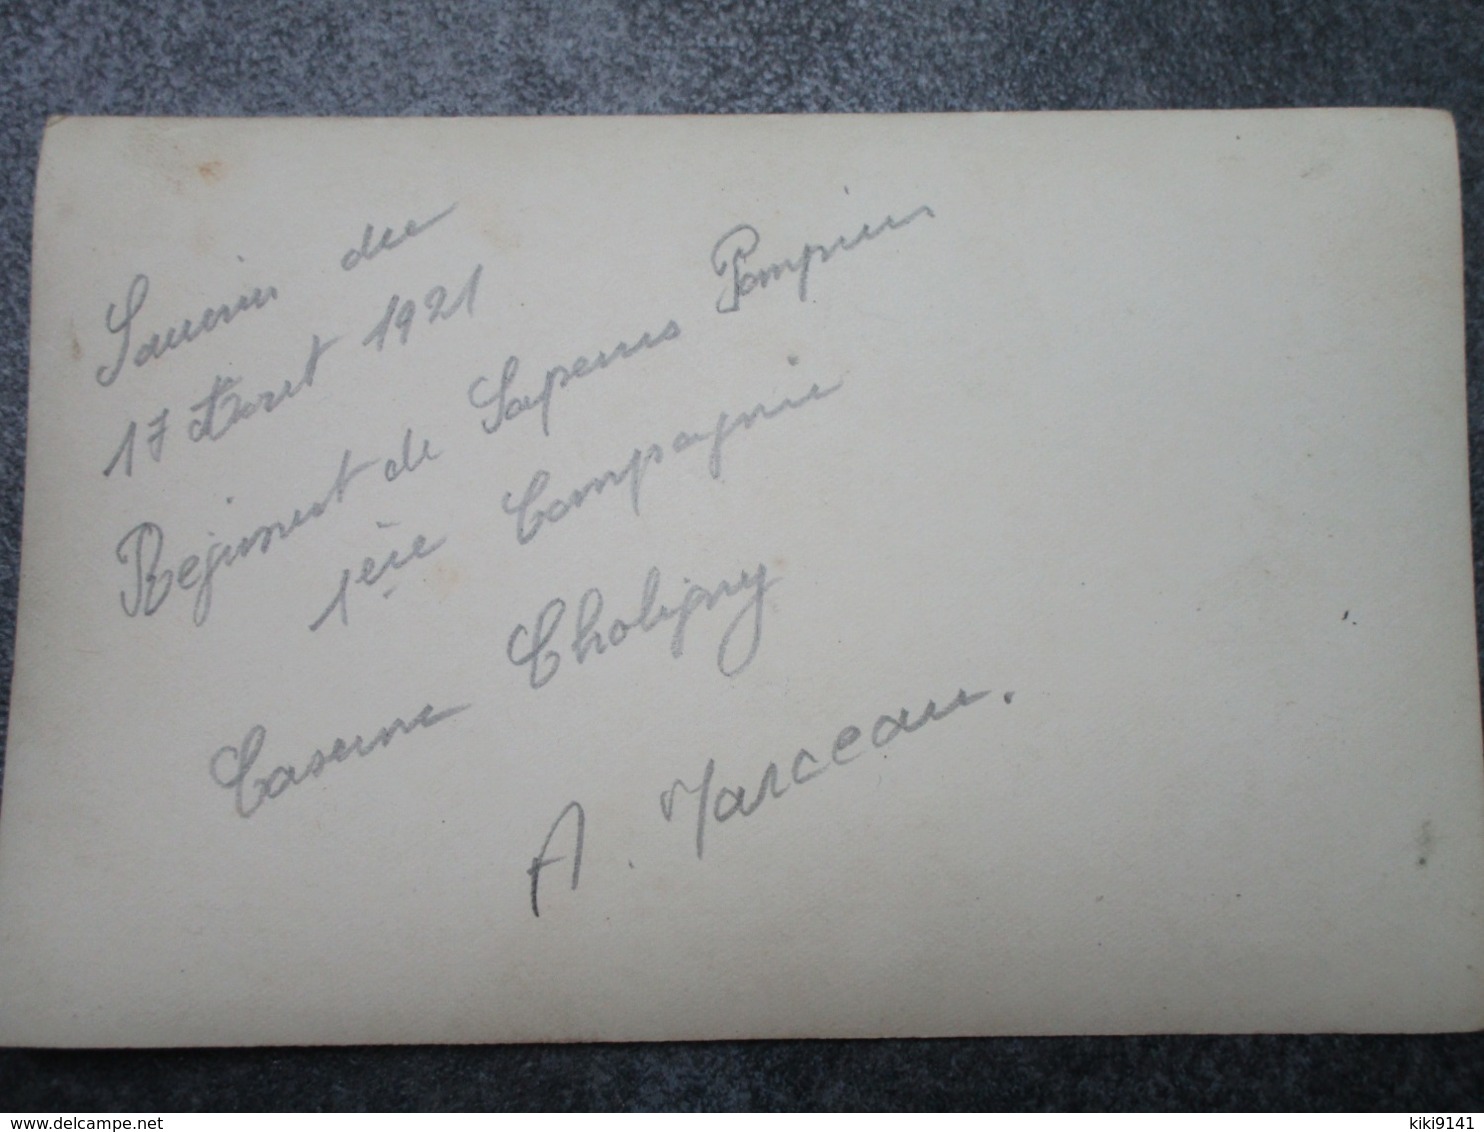 Souvenir du
17 Août 1921
Régiment de Sapeurs Pompiers
1ère Compagnie
Caserne Choligny
A. Marceau.
delcampe.net
kiki9141